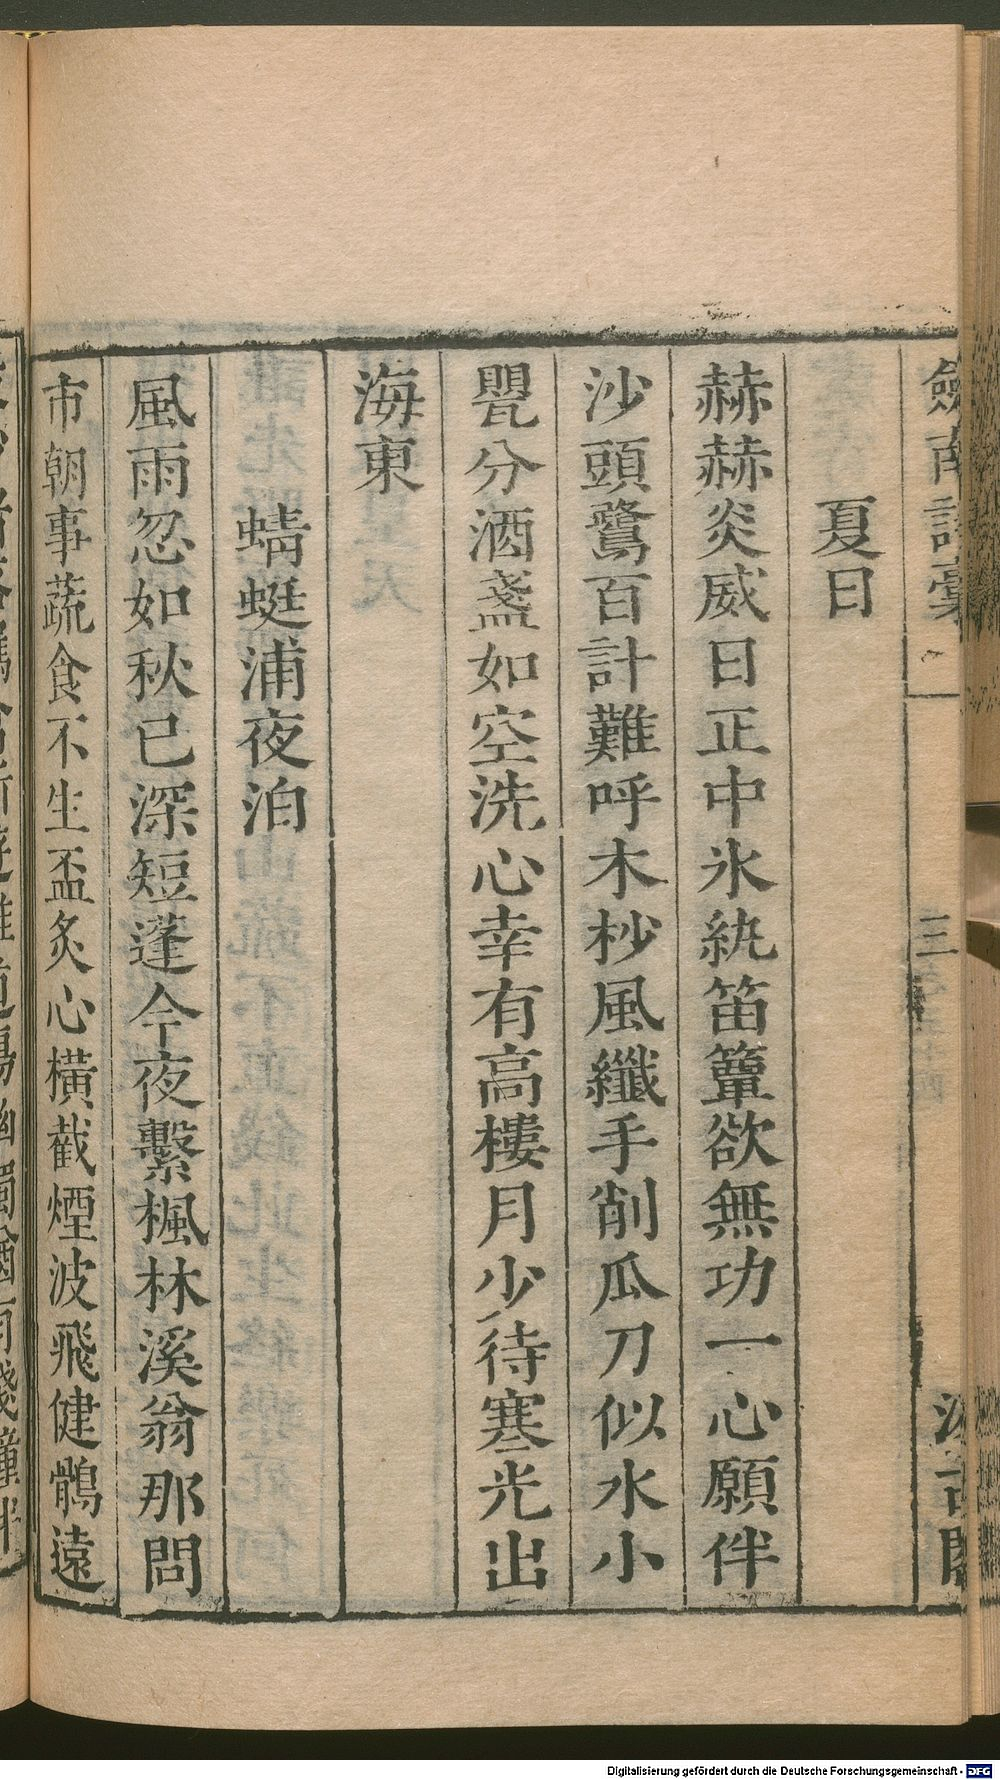 劒南詩稾
三
汲古閣
夏日
赫赫炎威日正中氷紈笛簟欲無功一心願伴
沙頭鷺百計難呼木杪風纖手削瓜刀似水小
甖分酒盞如空洗心幸有高樓月少待寒光出
海東
蜻蜓浦夜泊
風雨忽如秋已深短蓬今夜繫楓林溪翁那問
市朝事蔬食不生盃炙心橫截煙波飛健鶻遠
Digitalisierung gefördert durch die Deutsche Forschungsgemeinschaft - DFG